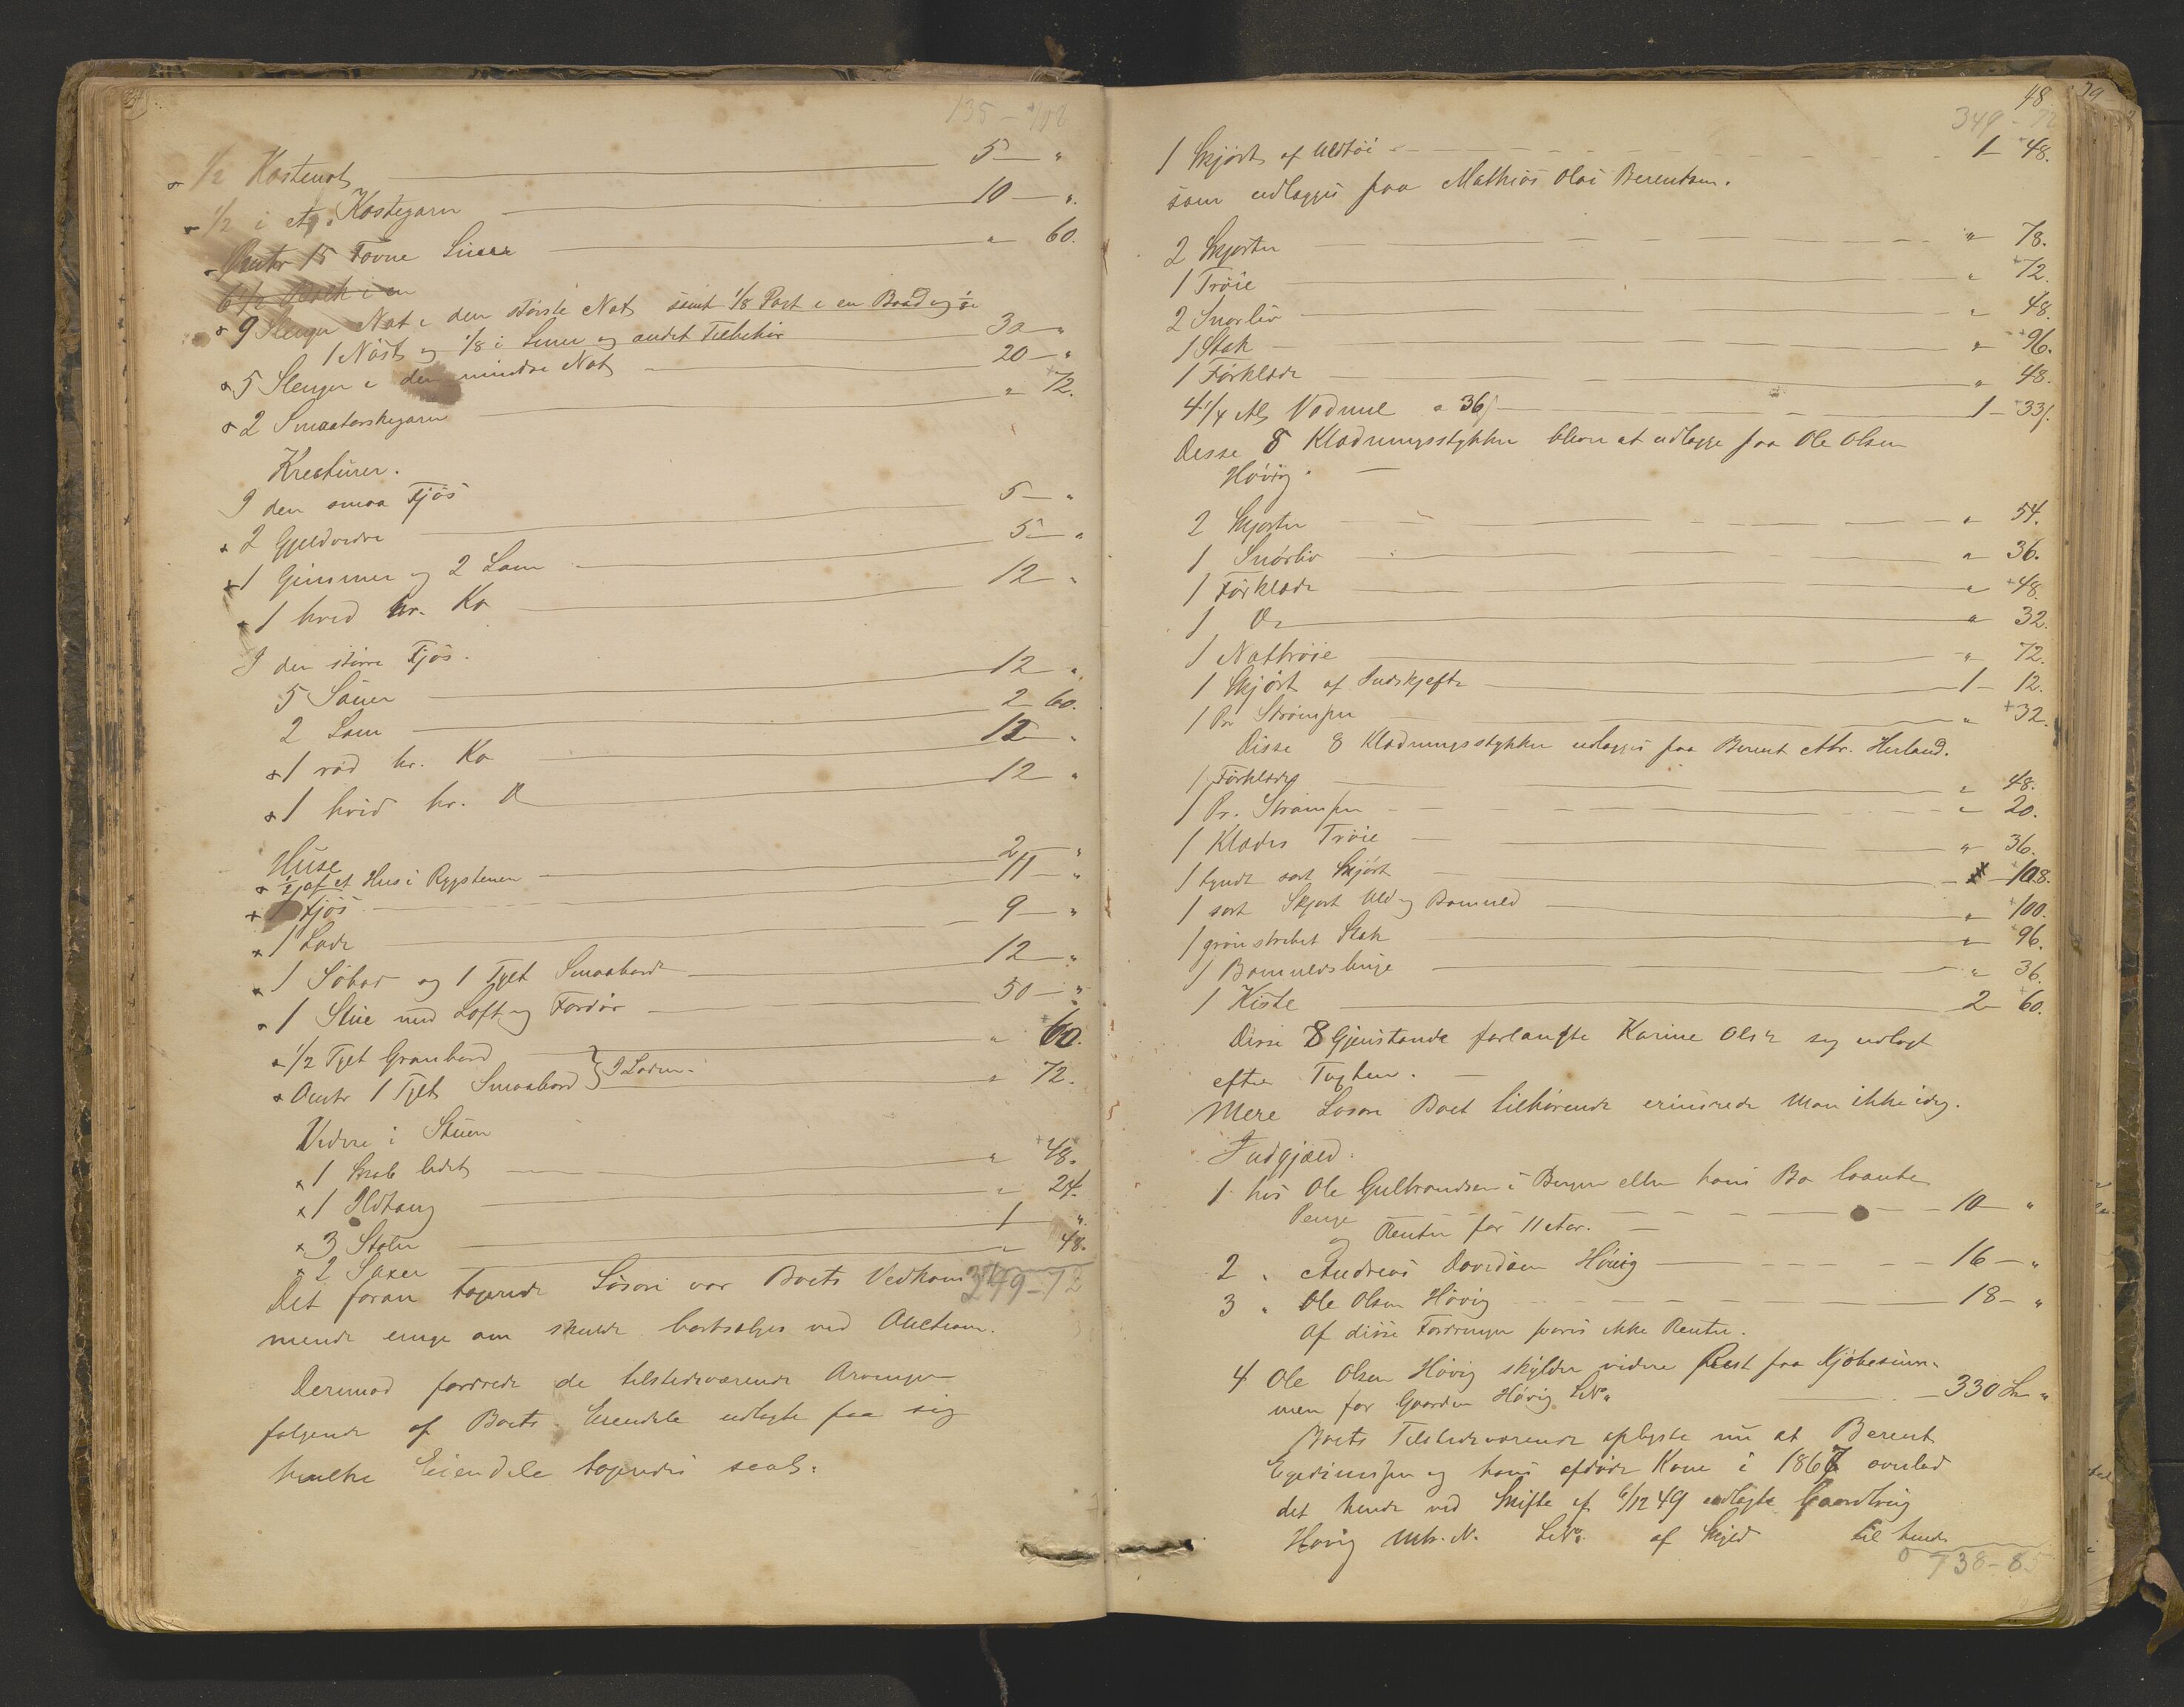 135 — 108
½ Kastenot — 5 — "
½ i et Kastegarn — 10 — "
Omtr 15 Favne Liner — " 60.
9 Slenger Not i den største Not samt 1/8 Part i en Baad og 1/8 i
1 Nøst og 1/8 i Liner og andet Tilbehør — 30 — "
5 Slenger i den mindre Not — 20 — "
2 Smaatorskegarn — " 72.
Kreaturer.
I den smaa Fjøs
2 Gjeldvedre — 5 — "
1 Gimmer og 2 Lam — 5 — "
1 hvid hr. Ko — 12 — "
I den større Fjøs.
5 Sauer — 12 — "
2 Lam — 2 — 60.
1 rød hr. Ko — 12 — "
1 hvid hr. D — 12 — "
Huse
af et Hus i Rygstenen — 2 — "
1 Fjøs — 11 — "
1 Lade — 9 — "
1 Søbod og 1 Tylt Smaabord — 12 — "
1 Stue med Loft og Fordør — 50 — "
½ Tylt Granbord — " 60.
Omtr 1 Tylt Smaabord } I Laden. — " 72.
Videre i Stuen
1 Skab lidet — " 48.
1 Ildtang — " 24.
3 Stoler — 1 — "
2 Saxer — " 48.
Det foran tagerede Løsøre var Boets Vedkom 349 – 72
mende enige om skulde bortsælges ved Auction.
Derimod fordrede de tilstedeværende Arvinger
følgende af Boets Eiendele udlagte paa sig
hvilke Eiendele tageredes saal:
48
349 – 72
1 Skjørt af Uldtøi — 1 — 48.
som udlagges paa Mathias Olai Berentsen.
2 Skjorter — " 78.
1 Trøie — " 72.
2 Snorliv — " 48.
1 Stak — " 96.
1 Förklæde — " 48.
4¼ Al Vadmel a 36 — 1 — 33
Disse 8 Klædningsstykker bliver at udlægge paa Ole Olsen
Høvig. —
2 Skjorter — " 54.
1 Snörliv — " 36.
1 Förklæde — " 48.
1 Do — " 32.
1 Nattrøie — " 72.
1 Skjørt af Indskjefte — 1 — 12.
1 Par Strömper — " 32.
Disse 8 Klædningsstykker udlagges paa Berent Abr. Herland.
1 Förklæde — " 48.
1 Pr. Strömper — " 20.
1 Klædes Trøie — " 36.
1 tyndt sort Skjört — 108.
1 sort Skjort Uld og Bomuld — " 100.
1 grøn stribet Stak — " 96.
1 Bomuldslinge — " 36.
1 Kiste — 2 — 60.
Disse 8 Gjenstande forlangte Karine Olsdr sig udlagt
efter Taxten. —
Mere Løsøre Boet tilhørende erindrede man ikke idag.
Indgjæld.
1 hos Ole Gulbrandsen i Bergen eller hans Bo laante
Penge — 10 — "
og Renter for 11 Aar. —
2 " Andreas Davidsen Høvig — 16 — "
3 " Ole Olsen Høvig — 18 — "
Af disse Fordringer svares ikke Renter.
4 Ole Olsen Høvig skylder videre Rest paa Kjøbesum-
men for Gaarden Høvig LNo — 330 "
Boets Tilstedeværende oplyste nu at Berent
og hans afdøde Kone i 1867 overlod
det hende ved Skifte af 6/12 49 udlagte Gaardbrug
Høvig Mtr. N. LNo. af Skyld til hende
738 – 85